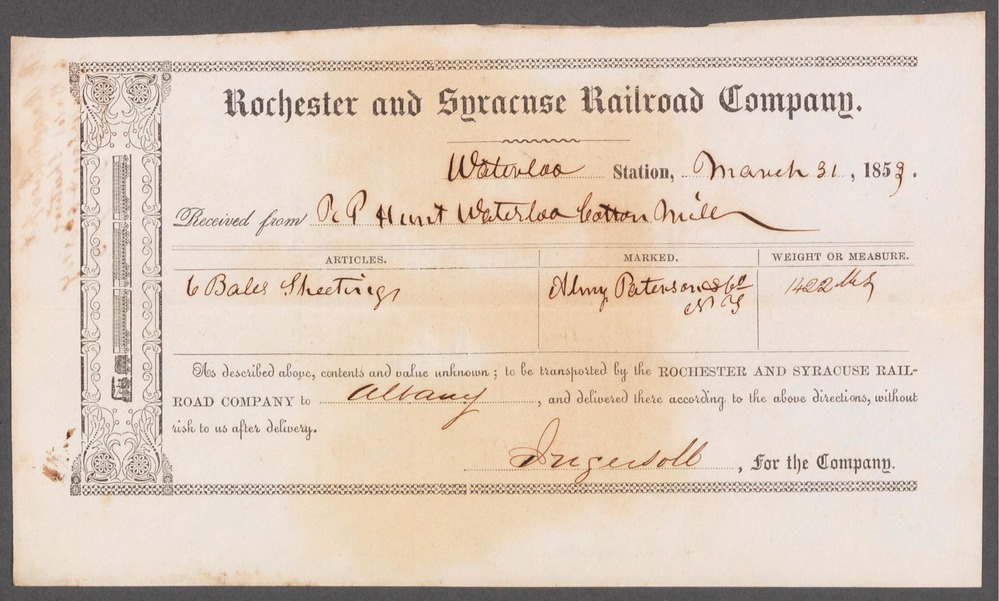 Rochester and Syracuse Railroad Company.
Waterloo Station, March 31, 1853.
Received from R P Hunt Waterloo Cotton Mill
ARTICLES. MARKED. WEIGHT OR MEASURE.
6 Bales Sheetings Almy Paterson & Co 1422 lbs
N Y
As described above, contents and value unknown; to be transported by the ROCHESTER AND SYRACUSE RAIL-
ROAD COMPANY to Albany, and delivered there according to the above directions, without
risk to us after delivery.
Ingersoll, For the Company.